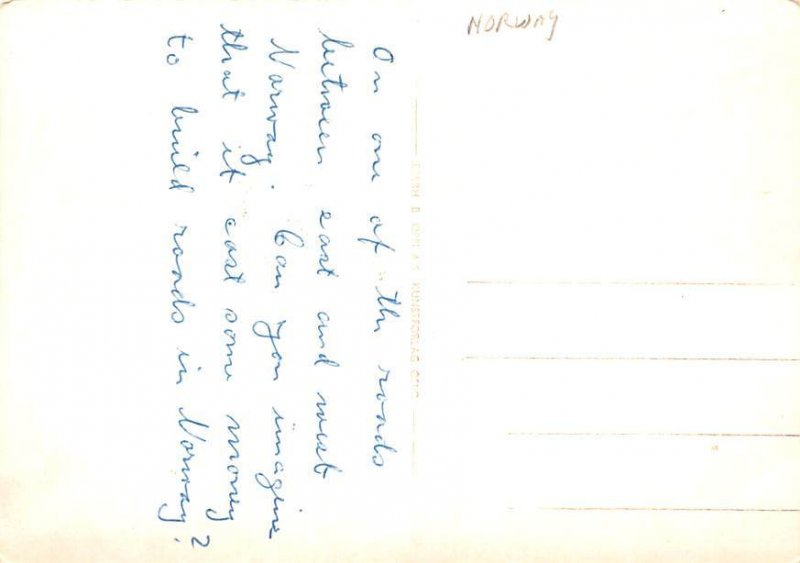 NORWAY
On one of the roads
between east and west
Norway. Can you imagine
that it cost some money
to build roads in Norway?
KUNSTFORLAG OSLO